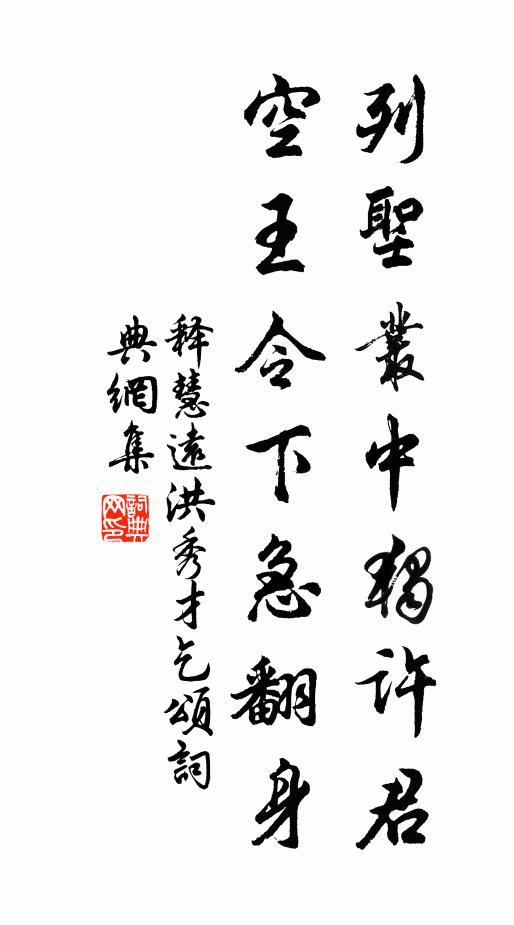 列聖叢中獨許君
空王令下急翻身
释慧遠洪秀才乞頌詞
典網集
詞典網印